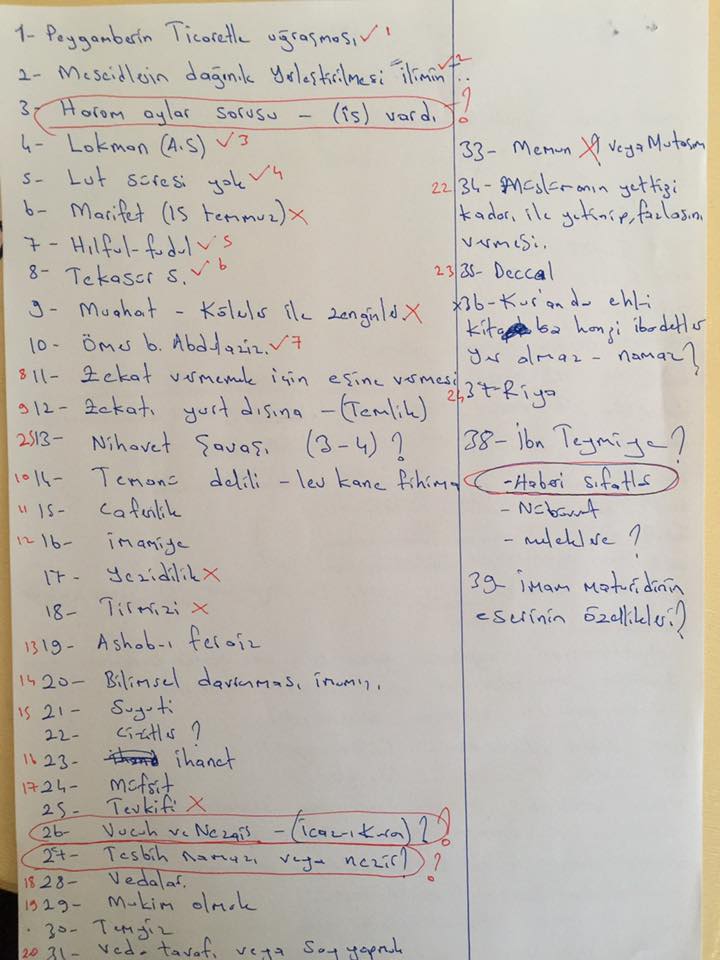 1- Peygamberin Ticaretle uğraşması ✓ 1
2- Mescidlerin dağınık yerleştirilmesi ilimin .. ✓ 2
3- Haram aylar sorusu - (İs) vardı. ?
4- Lokman (A.S) ✓ 3
5- Lut sûresi yok ✓ 4
6- Marifet (15 temmuz) X
7- Hilful-fudul ✓ 5
8- Tekasür s. ✓ 6
9- Muahat - Köleler ile zenginler X
10- Ömer b. Abdulaziz. ✓ 7
8 11- Zekat vermemek için eşine vermesi
9 12- Zekatı yurt dışına - (Temlik)
25 13- Nihavet Savaşı (3-4) ?
10 14- Temanu delili - lev kane fihima
11 15- Caferilik
12 16- imamiye
17- Yezidilik X
18- Tirmizi X
13 19- Ashab-ı feraiz
14 20- Bilimsel davranması, imamın.
15 21- Suyuti
22- ?
16 23- ihanet
17 24- Müfsit
25- Tevkifi X
26- Vucuh ve Nezair - (icaz-ı Kuran) ? ?
27- Tesbih namazı veya nezir? ?
18 28- Vedalar.
19 29- Mukim olmak
30- Temyiz
20 31- Veda tavafı veya Say yapmak
33- Memun X veya Mutasım
22 34- yettiği
kadarı ile yetinip, fazlasını
vermesi.
23 35- Deccal
x36- Kur'anda ehli
kitaba hangi ibadetler
yer almaz - namaz?
24 37- Riya
38- İbn Teymiye?
- Haberi sıfatlar
- Nübüvvet
- meleklere ?
39- İmam maturidinin
eserinin özellikleri?